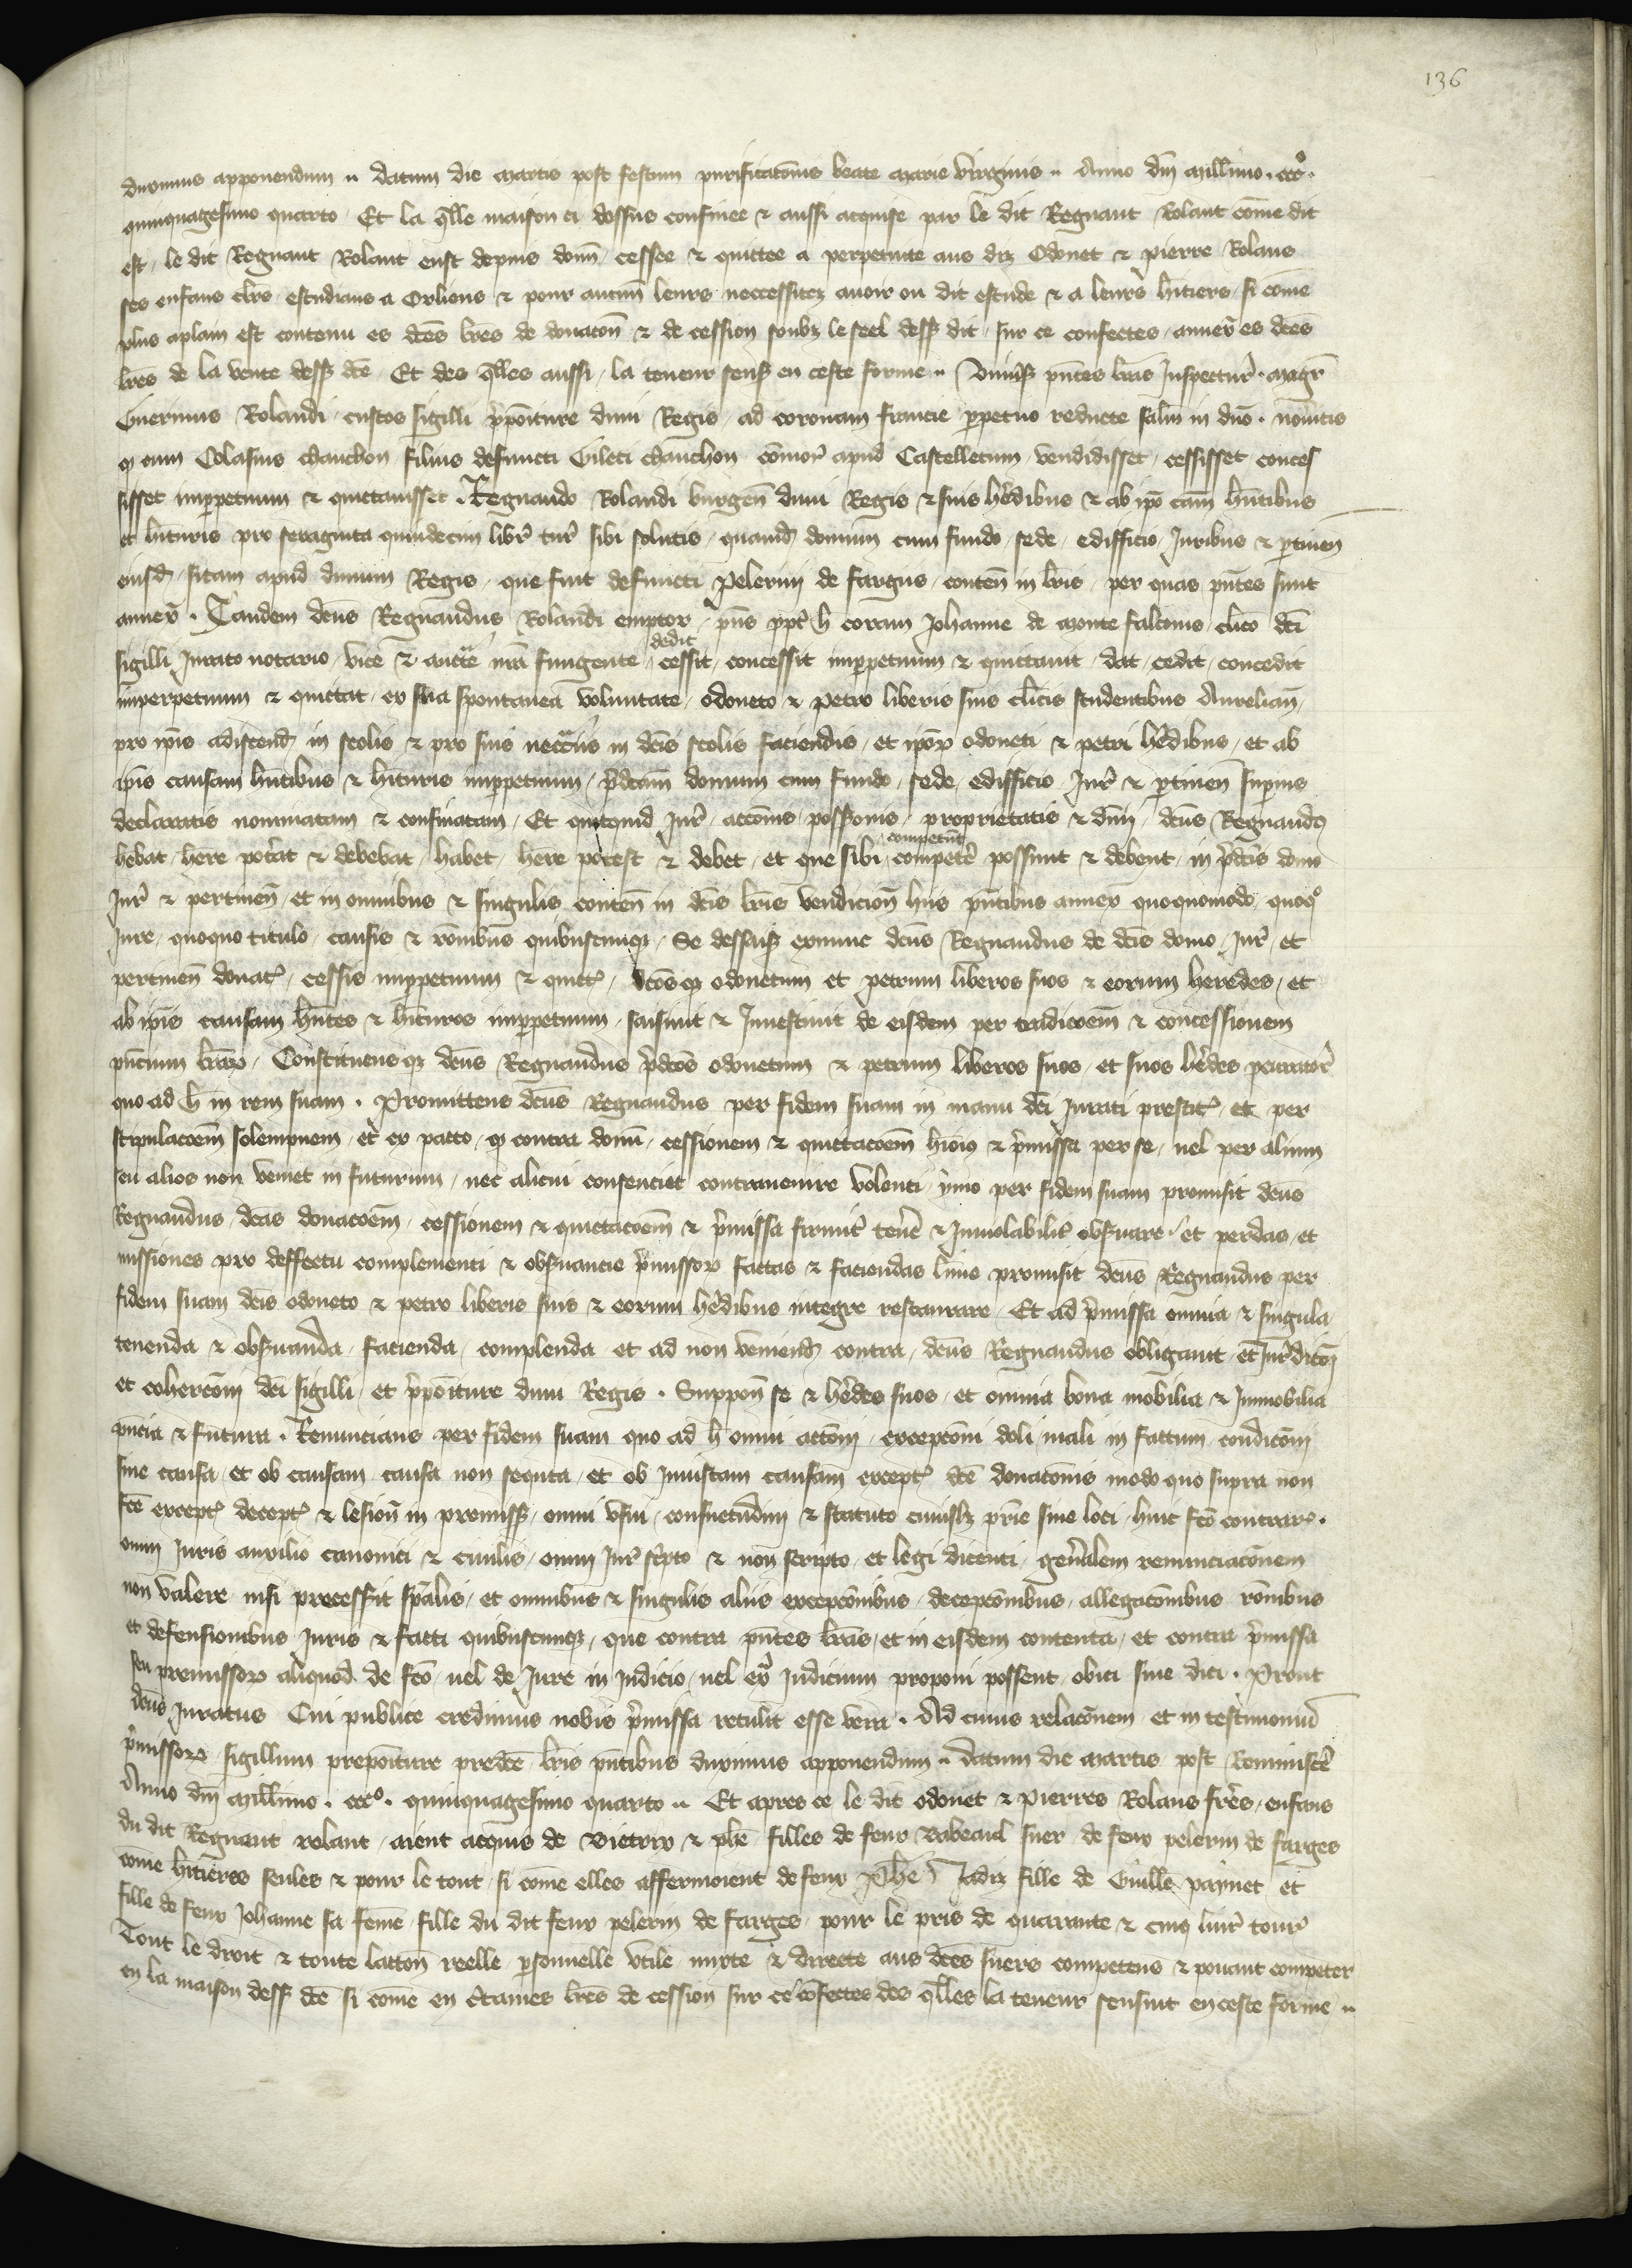 136
duximus apponendum .. datum die martis post festum purificatōnis beate marie virginis .. Anno dn̄i mill̄imo . cccº .
quinquagesimo quarto . Et la q̄lle maison ci dessus confinee & aussi acquise par le dit Regnaut Rolant cōme dit
est / le dit Regnaut Rolant eust depuis donn̄ / cessee & quittee a perpetuite aus diz Odonet & Pierre Rolans
ses enfans cl̄rs estudians a Orliens & pour aucun̄ leurs neccessitez auoir ou dit estude & a leurs hītiers / si cōme
plus aplain est contenu es dc̄es lr̄es de donacōn & de cession soubz le seel dess9 dit / sur ce confectes / annex̄ es dc̄es
lr̄es de la vente dess9 dc̄e . Et des q̄lles aussi / la teneur sensuit en ceste forme .. Vniūsis pn̄tes lr̄as Inspectur̄ . magr̄
Guerinus Rolandi / custos sigilli p̄poīture dn̄i Regis / ad coronam francie ꝑpetuo reducte sal̄m in dn̄o . nou̾itis
ꝙ cum Colasius chauchon filius defuncti Gileti chauchon cōmor̄ apud Castelletum / vendidisset / cessisset conces
sisset imꝑpetuum & quittauisset . Regnaudo Rolandi burgen̄ dn̄i Regis & suis hēdibus & ab ip̄o cām hn̄tibus
et hīturis pro sexaginta quindecim libr̄ tur̄ sibi solutis / quamd̄ domum cum fundo / sede / edifficio / Juribus & ꝑtinen̄
eiusd̄ / sitam apud dunum Regis / que fuit defuncti Pelerini de fargus / conten̄ in lr̄is / per quas pn̄tes sunt
annex̄ . Tandem dc̄us Regnaudus Rolandi emptor / pn̄s ꝓpt̄ h̄ coram Johanne de monte falconis / cl̄ico dc̄i
sigilli Jurato notario / vice & auct̄te nr̄a fungente / dedit cessit / concessit imꝑpetuum & quittauit / dat / cedit / concedit
imperpetuum & quittat / ex sua spontanea voluntate / odoneto & petro liberis suis cl̄icis studentibus Aurelian̄ /
pro ip̄is adiscend̄ in scolis & pro suis necc̄iis in dc̄is scolis faciendis / et ip̄oꝝ odoneti & petri hēdibus / et ab
ip̄is causam hn̄tibus & hīturis imꝑpetuum / p̄dc̄am domum cum fundo / sede / edifficio Jur̄ & ꝑtinen̄ supius
declaratis nominatam & confinatam / Et quitquid Jur̄ / accōnis / possessionis / proprietatis & dn̄ii / dc̄us Regnaudus
hēbat / here pot̄at & debebat / habet / here potest & debet / et que sibi competūt competē possunt & debent / in p̄dc̄is domo
Jur̄ & pertinen̄ / et in omnibus & singulis conten̄ in dc̄is lr̄is vendicion̄ hiis pn̄tibus annex̄ quoquomodo / quoqº
Jure / quoquo titulo / causis & rōnibus quibuscumqꝫ / Se dessais̄ exnunc dc̄us Regnaudus de dc̄is domo / Jur̄ / et
pertinen̄ donat̄ / cessis imꝑpetuum & quitt̄ / dc̄osqꝫ odonetum et petrum liberos suos & eorum heredes / et
ab ip̄is causam hn̄tes & hīturos imꝑpetuum / saisiuit & Inuestiuit de eisdem per tradicōem & concessionem
pn̄cium lr̄aꝝ . Constituensqꝫ dc̄us Regnaudus p̄dc̄os odonetum & petrum liberos suos / et suos hēdes ꝓcurator̄
quo ad h̄ in rem suam . Promittens dc̄us Regnaudus per fidem suam in manu dc̄i Jurati prestit̄ / et per
stipulacōem solempnem / et ex pacto / ꝙ contra donū / cessionem & quittacōem hiōi & p̄missa per se / uel per alium
seu alios non veniet in futurum / nec alicui consenciet contrauenire volenti / ymo per fidem suam promisit dc̄us
Regnaudus / dc̄as donacōem / cessionem & quictacōem & p̄missa firmit̄ tenē & Inuiolabilit̄ obseruare / et perdas / et
missiones pro deffectu complementi & obseruancie p̄missoꝝ factas & faciendas l̄ime promisit dc̄us Regnaudus per
fidem suam dc̄is odoneto & petro liberis suis & eorum hēdibus integre restaurare . Et ad p̄missa omnia & singula
tenenda & obseruanda / facienda / complenda / et ad non veniend̄ contra / dc̄us Regnaudus obligauit / et Jur̄dicōi
et cohercōni dc̄i sigilli / et p̄poīture dn̄i Regis . Suppon̄ se & hēdes suos / et omnia bona mobilia & Immobilia
pn̄cia & futura . Renuncians per fidem suam quo ad h̄ omni actōni / excepcōni doli mali in factum / condicōni
sine causa / et ob causam causa non sequta / et ob Iniustam causam except̄ dc̄e donacōnis modo quo supra non
fc̄e except̄ decept̄ & lesion̄ in premiss9 / omni vsui / consuetudini & statuto cuiuslꝫ pr̄ie siue loci / huic fc̄o contrar̄ .
omni Iuris auxilio canonici & ciuilis / omni Iur̄ sc̄pto & non scripto / et legi dicenti / gen̄alem renunciacōnem
non valere nisi precess̄it sp̄alis / et omnibus & singulis aliis excepcōnibus / decepcōnibus / allegacōnibus rōnibus
et defensionibus Iuris & facti quibuscumqꝫ / que contra pn̄tes lr̄as / et in eisdem contenta / et contra p̄missa
seu premissoꝝ aliquod de fc̄o / uel de Jure in Judicio / uel ex̄ Judicium proponi possent / obici siue dici . Prout
dc̄us Juratus Cui publice credimus nobis p̄missa retulit esse vera . Ad cuius relacōnem et in testimoniū
p̄missoꝝ sigillum prepoīture predc̄e lr̄is pn̄tibus duximus apponendum .. datum die martis post Reminiscē
Anno dn̄i mill̄imo . cccº . quinquagesimo quarto .. Et apres ce le dit odonet & Pierres Rolans frēs / enfans
du dit Regnaut rolant / aient acquis de & ph̄e filles de feux suer de feux pelerin de farges
cōme hītieres seules & pour le tout / si cōme elles affermoient de feux Ph̄e Jadiz fille de Guill̄e paynet et
fille de feux Johanne sa fēme fille du dit feux pelerin de farges / pour le pris de quarante & cinq liur̄ tour̄
Tout le droit & toute lattōn reelle ꝑsonnelle vtile mixte & directe aus dc̄es suers competens & pouant competer
en la maison dess9 dc̄e si cōme en lr̄es de cession sur ce cōfectes des q̄lles la teneur sensuit en ceste forme ..